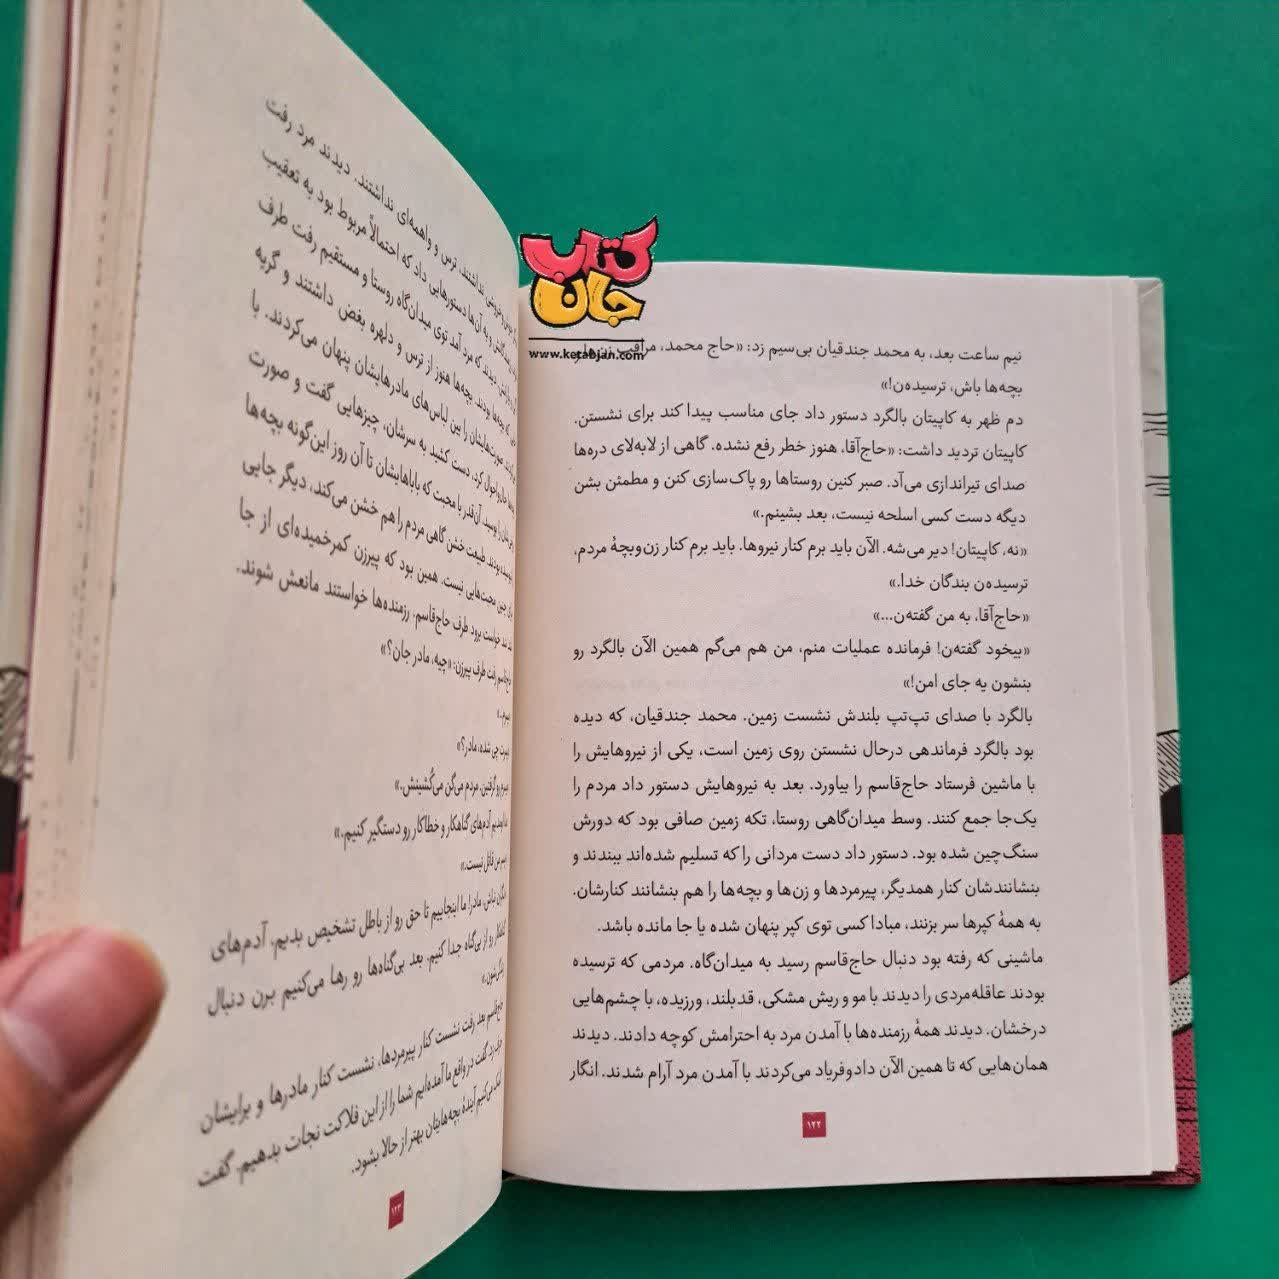 کتاب
جان
www.ketabjan.com
نیم ساعت بعد، به محمد جندقیان بی‌سیم زد: «حاج محمد، مراقب
بچه‌ها باش، ترسیده‌ن!»
دم ظهر به کاپیتان بالگرد دستور داد جای مناسب پیدا کند برای نشستن.
کاپیتان تردید داشت: «حاج‌آقا، هنوز خطر رفع نشده. گاهی از لابه‌لای دره‌ها
صدای تیراندازی می‌آد. صبر کنین روستاها رو پاک‌سازی کنن و مطمئن بشن
دیگه دست کسی اسلحه نیست، بعد بشینم.»
«نه، کاپیتان! دیر می‌شه. الآن باید برم کنار نیروها. باید برم کنار زن‌وبچهٔ مردم،
ترسیده‌ن بندگان خدا.»
«حاج‌آقا، به من گفته‌ن...»
«بیخود گفته‌ن! فرمانده عملیات منم، من هم می‌گم همین الآن بالگرد رو
بنشون یه جای امن!»
بالگرد با صدای تپ‌تپ بلندش نشست زمین. محمد جندقیان، که دیده
بود بالگرد فرماندهی درحال نشستن روی زمین است، یکی از نیروهایش را
با ماشین فرستاد حاج‌قاسم را بیاورد. بعد به نیروهایش دستور داد مردم را
یک‌جا جمع کنند. وسط میدان‌گاهی روستا، تکه زمین صافی بود که دورش
سنگ‌چین شده بود. دستور داد دست مردانی را که تسلیم شده‌اند ببندند و
بنشانندشان کنار همدیگر، پیرمردها و زن‌ها و بچه‌ها را هم بنشانند کنارشان.
به همهٔ کپرها سر بزنند، مبادا کسی توی کپر پنهان شده یا جا مانده باشد.
ماشینی که رفته بود دنبال حاج‌قاسم رسید به میدان‌گاه. مردمی که ترسیده
بودند عاقله‌مردی را دیدند با مو و ریش مشکی، قدبلند، ورزیده، با چشم‌هایی
درخشان. دیدند همهٔ رزمنده‌ها با آمدن مرد به احترامش کوچه دادند. دیدند
همان‌هایی که تا همین الآن دادوفریاد می‌کردند با آمدن مرد آرام شدند. انگار
۱۲۲
نداشتند، ترس و واهمه‌ای نداشتند. دیدند مرد رفت
و به آن‌ها دستورهایی داد که احتمالاً مربوط بود به تعقیب
دیدند که مرد آمد توی میدان‌گاه روستا و مستقیم رفت طرف
بچه‌ها بودند. بچه‌ها هنوز از ترس و دلهره بغض داشتند و گریه
صورت‌هایشان را بین لباس‌های مادرهایشان پنهان می‌کردند. با
حال‌واحوال کرد، دست کشید به سرشان، چیزهایی گفت و صورت
را بوسید. آن‌قدر با محبت که باباهایشان تا آن روز این‌گونه بچه‌ها
بودند. طبیعت خشن گاهی مردم را هم خشن می‌کند، دیگر جایی
چنین محبت‌هایی نیست. همین بود که پیرزن کمرخمیده‌ای از جا
خواست برود طرف حاج‌قاسم. رزمنده‌ها خواستند مانعش شوند.
حاج‌قاسم رفت طرف پیرزن: «چیه، مادر جان؟»
چی شده، مادر؟»
رو گرفتین، مردم می‌گن می‌کُشینش.»
آدم‌های گناهکار و خطاکار رو دستگیر کنیم.»
قاتل نیست.»
نباش، مادر! ما اینجاییم تا حق رو از باطل تشخیص بدیم، آدم‌های
رو از بی‌گناه جدا کنیم. بعد بی‌گناه‌ها رو رها می‌کنیم برن دنبال
حاج‌قاسم بعد رفت نشست کنار پیرمردها، نشست کنار مادرها و برایشان
حرف زد، گفت در واقع ما آمده‌ایم شما را از این فلاکت نجات بدهیم، گفت
می‌کنیم آیندهٔ بچه‌هایتان بهتر از حالا بشود.
۱۲۳